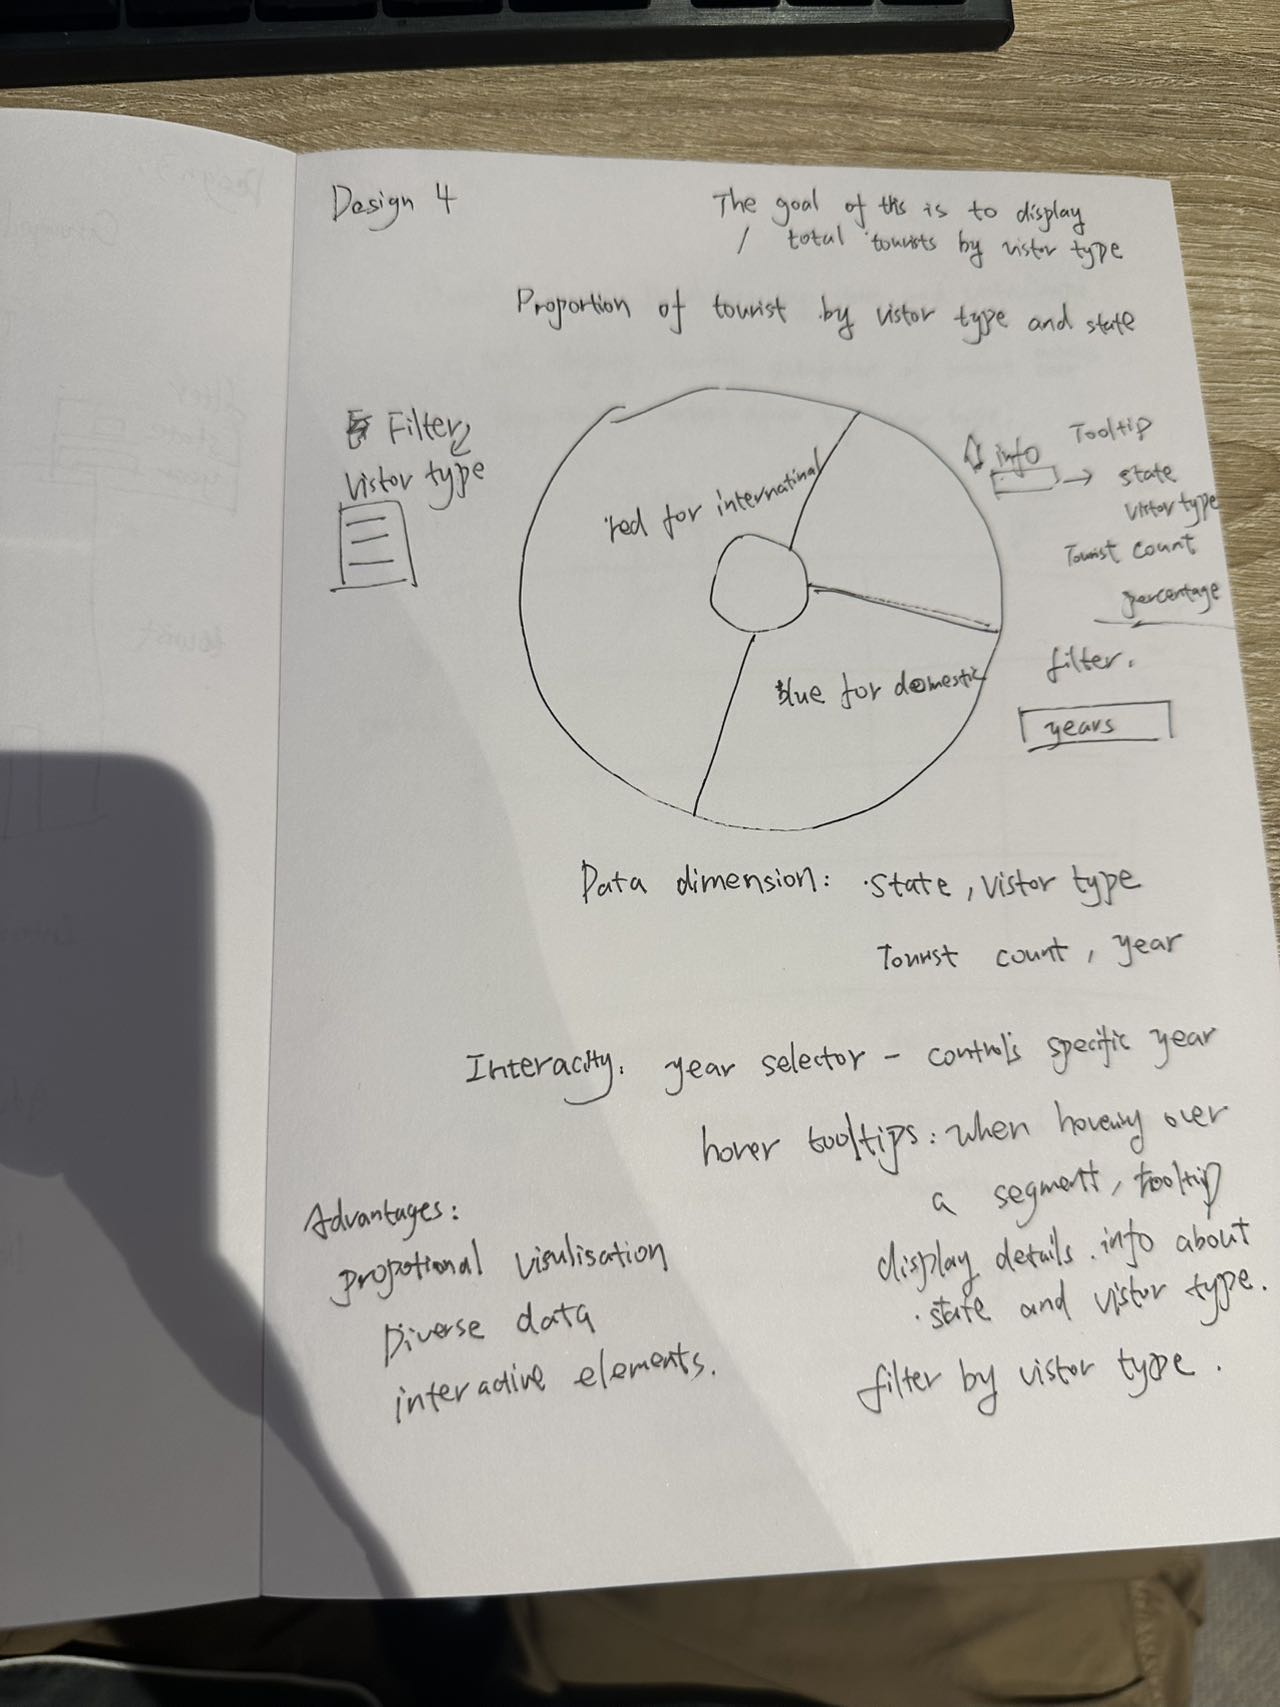 Design 4
The goal of ths is to display
/ total tourists by vistor type
Proportion of tourist by vistor type and state
Filter
vistor type
red for internatinal
blue for domestic
info
Tooltip
state
vistor type
Tourist count
percentage
filter.
years
Data dimension: state, vistor type
Tourist count, year
Interacity: year selector - controls specific year
hover tooltips: when hovering over
a segment, tooltip
display details info about
state and vistor type.
filter by vistor type.
Advantages:
propotional visulisation
Diverse data
interactive elements.